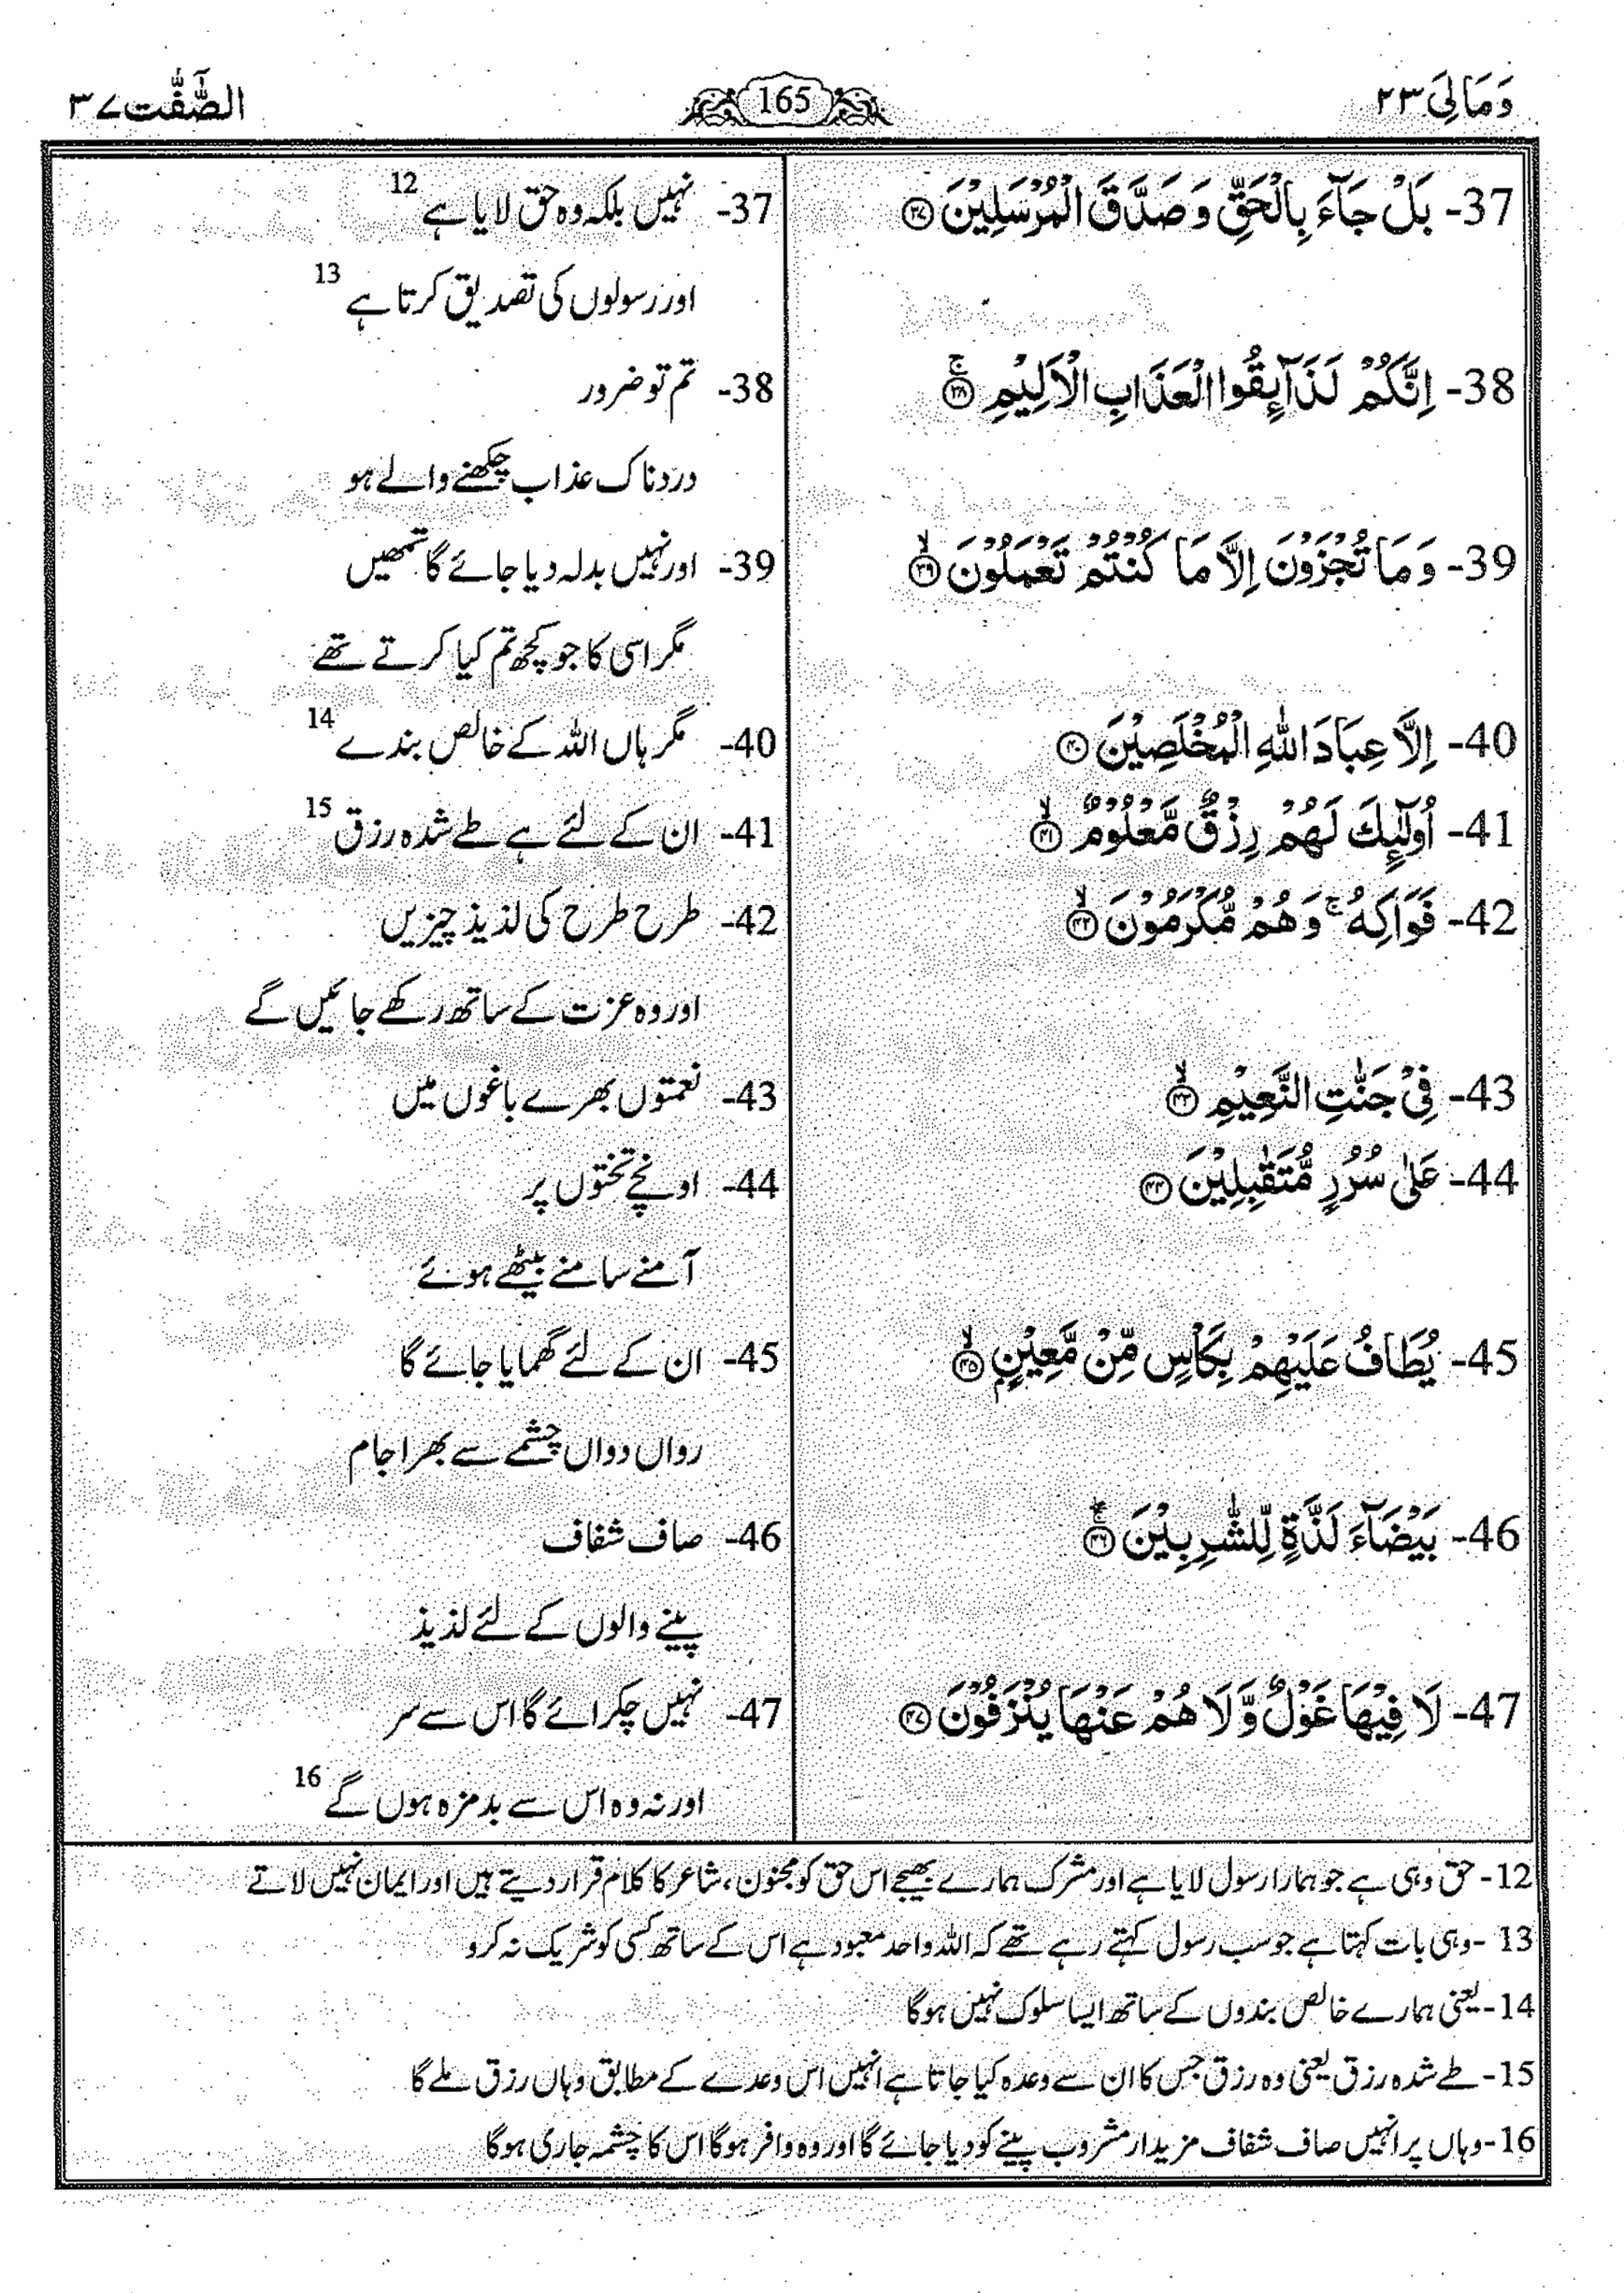 وَمَالِیَ ٢٣
165
الصّٰٓفّٰت ٣٧
37- بَلْ جَآءَ بِالْحَقِّ وَ صَدَّقَ الْمُرْسَلِيْنَ ۝٣٧
37- نہیں بلکہ وہ حق لایا ہے 12
اور رسولوں کی تصدیق کرتا ہے 13
38- اِنَّكُمْ لَذَآىِٕقُوا الْعَذَابِ الْاَلِيْمِ ۚ۝٣٨
38- تم تو ضرور
دردناک عذاب چکھنے والے ہو
39- وَ مَا تُجْزَوْنَ اِلَّا مَا كُنْتُمْ تَعْمَلُوْنَ ۙ۝٣٩
39- اور نہیں بدلہ دیا جائے گا تمھیں
مگر اسی کا جو کچھ تم کیا کرتے تھے
40- اِلَّا عِبَادَ اللّٰهِ الْمُخْلَصِيْنَ ۝٤٠
40- مگر ہاں اللہ کے خالص بندے 14
41- اُولٰٓىِٕكَ لَهُمْ رِزْقٌ مَّعْلُوْمٌ ۙ۝٤١
41- ان کے لئے ہے طے شدہ رزق 15
42- فَوَاكِهُ ۚ وَ هُمْ مُّكْرَمُوْنَ ۙ۝٤٢
42- طرح طرح کی لذیذ چیزیں
اور وہ عزت کے ساتھ رکھے جائیں گے
43- فِيْ جَنّٰتِ النَّعِيْمِ ۙ۝٤٣
43- نعمتوں بھرے باغوں میں
44- عَلٰى سُرُرٍ مُّتَقٰبِلِيْنَ ۝٤٤
44- اونچے تختوں پر
آمنے سامنے بیٹھے ہوئے
45- يُطَافُ عَلَيْهِمْ بِكَاْسٍ مِّنْ مَّعِيْنٍۭ ۙ۝٤٥
45- ان کے لئے گھمایا جائے گا
رواں دواں چشمے سے بھرا جام
46- بَيْضَآءَ لَذَّةٍ لِّلشّٰرِبِيْنَ ۚۖ۝٤٦
46- صاف شفاف
پینے والوں کے لئے لذیذ
47- لَا فِيْهَا غَوْلٌ وَّ لَا هُمْ عَنْهَا يُنْزَفُوْنَ ۝٤٧
47- نہیں چکرائے گا اس سے سر
اور نہ وہ اس سے بدمزہ ہوں گے 16
12- حق وہی ہے جو ہمارا رسول لایا ہے اور مشرک ہمارے بھیجے اس حق کو مجنون، شاعر کا کلام قرار دیتے ہیں اور ایمان نہیں لاتے
13- وہی بات کہتا ہے جو سب رسول کہتے رہے تھے کہ اللہ واحد معبود ہے اس کے ساتھ کسی کو شریک نہ کرو
14- یعنی ہمارے خالص بندوں کے ساتھ ایسا سلوک نہیں ہوگا
15- طے شدہ رزق یعنی وہ رزق جس کا ان سے وعدہ کیا جاتا ہے انہیں اس وعدے کے مطابق وہاں رزق ملے گا
16- وہاں پر انہیں صاف شفاف مزیدار مشروب پینے کو دیا جائے گا اور وہ وافر ہوگا اس کا چشمہ جاری ہوگا